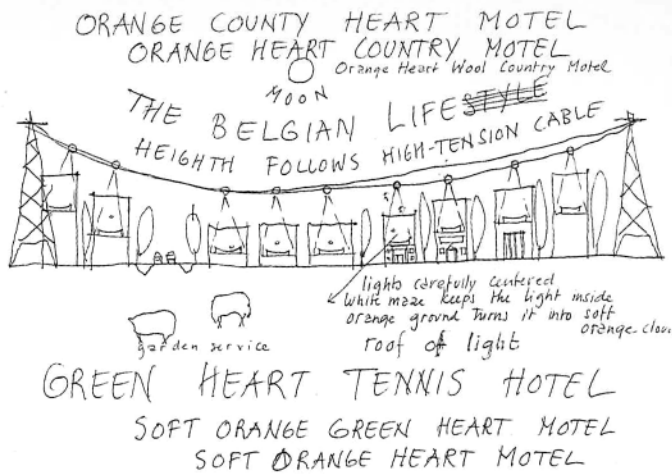 ORANGE COUNTY HEART MOTEL
ORANGE HEART COUNTRY MOTEL
Orange Heart Wool Country Motel
MOON
THE BELGIAN LIFESTYLE
HEIGHTH FOLLOWS HIGH-TENSION CABLE
lights carefully centered
white maze keeps the light inside
orange ground turns it into soft
orange cloud
roof of light
garden service
GREEN HEART TENNIS HOTEL
SOFT ORANGE GREEN HEART MOTEL
SOFT ORANGE HEART MOTEL